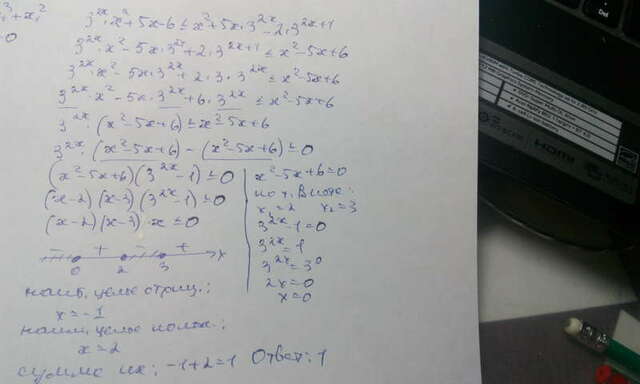 3^{2x}·x²+5x-6≤x²+5x·3^{2x}-2·3^{2x+1}
3^{2x}·x²-5x·3^{2x}+2·3^{2x+1}≤x²-5x+6
3^{2x}·x²-5x·3^{2x}+2·3·3^{2x}≤x²-5x+6
3^{2x}·x²-5x·3^{2x}+6·3^{2x}≤x²-5x+6
3^{2x}·(x²-5x+6)≤x²-5x+6
3^{2x}·(x²-5x+6)-(x²-5x+6)≤0
(x²-5x+6)(3^{2x}-1)≤0
(x-2)(x-3)(3^{2x}-1)≤0
(x-2)(x-3)·x≤0
x²-5x+6=0
по т. Виета:
x₁=2 x₂=3
3^{2x}-1=0
3^{2x}=1
3^{2x}=3⁰
2x=0
x=0
- + - + x
0 2 3
наиб. целые отриц.:
x=-1
наим. целые полож.:
x=2
сумма их: -1+2=1 Ответ: 1
HDMI